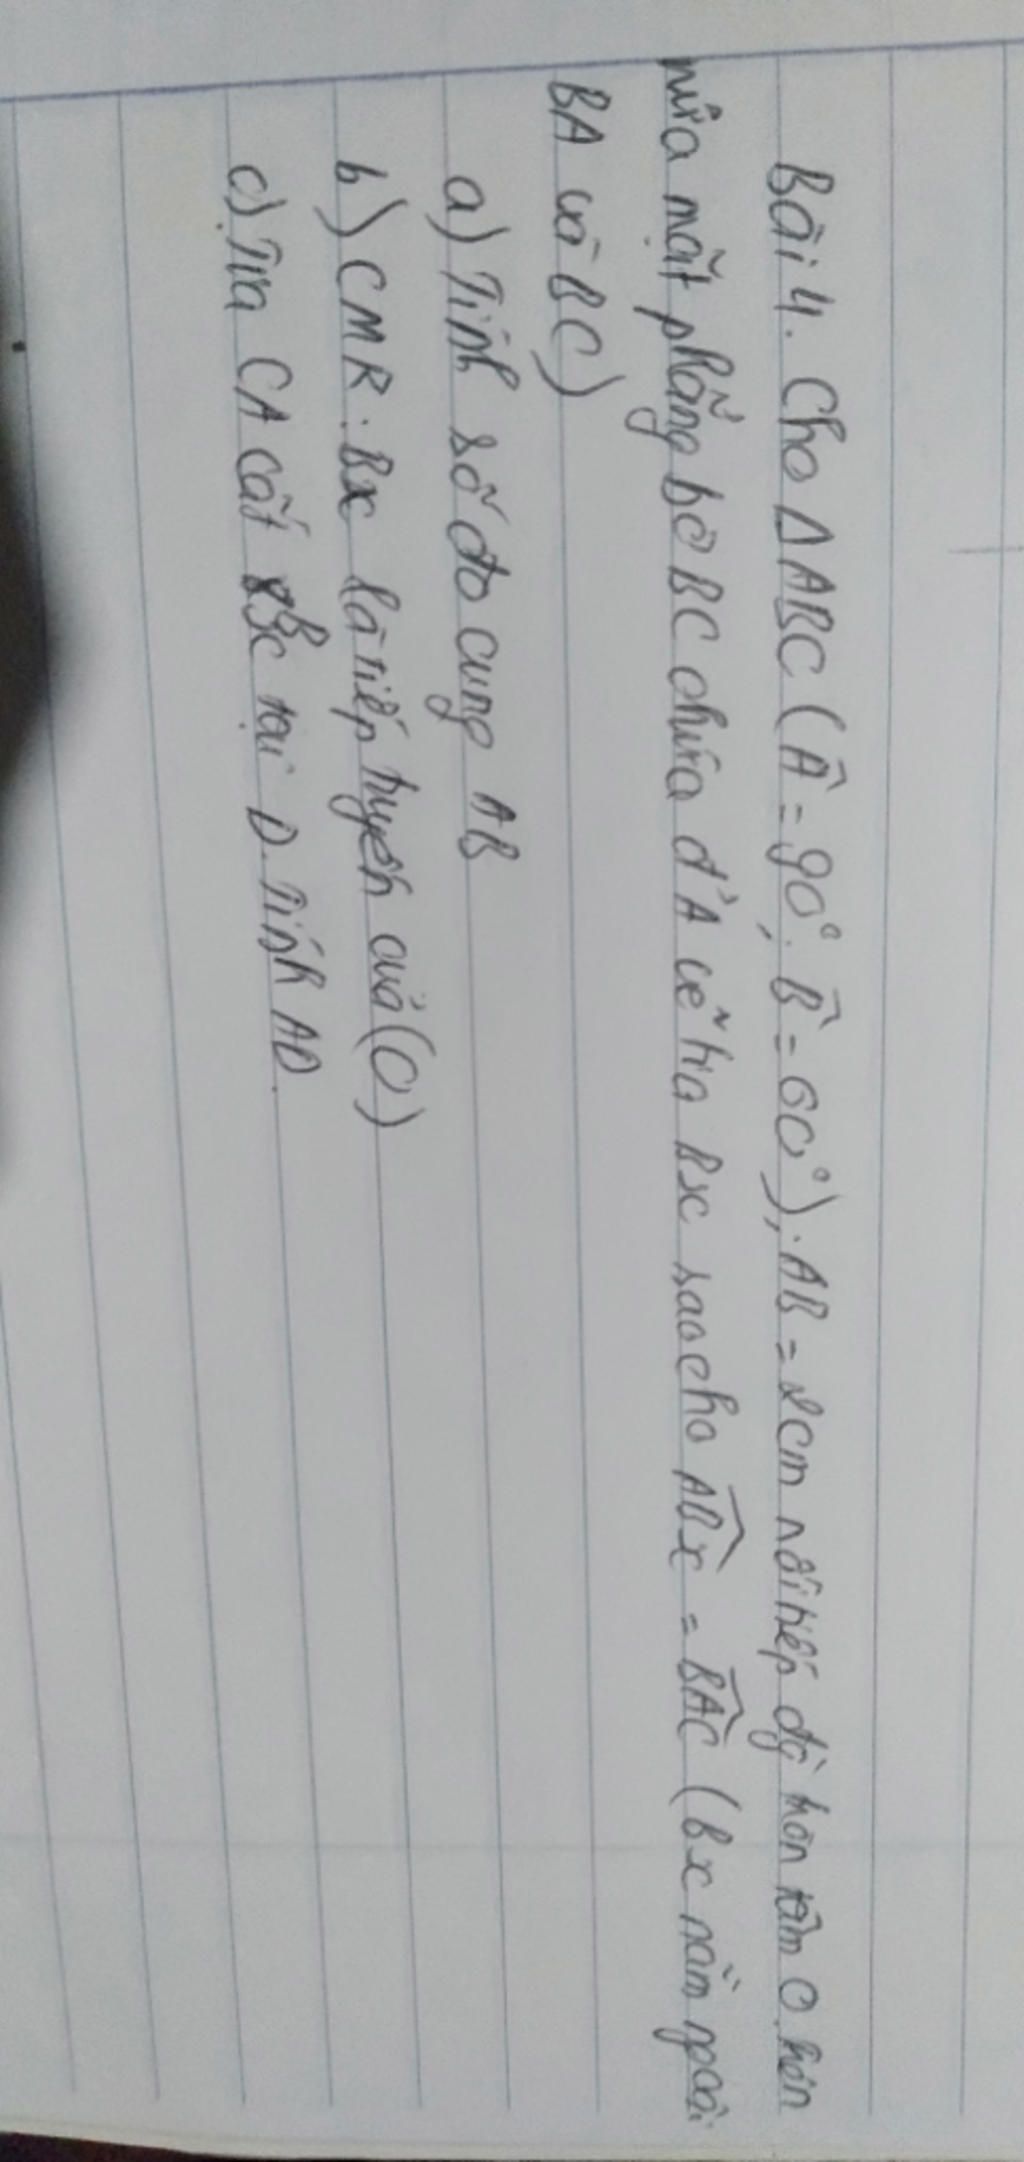 Bài 4. Cho ΔABC (Â = 90°, B̂ = 60°), AB = 2cm nội tiếp đg tròn tâm O. trên
nửa mặt phẳng bờ BC chứa đ' A vẽ tia Bx sao cho ABx = BAC (Bx nằm ngoài
BA và BC)
a) Tính số đo cung AB
b) CMR: Bx là tiếp tuyến của (O)
c) Tia CA cắt Bx tại D. Tính AD.